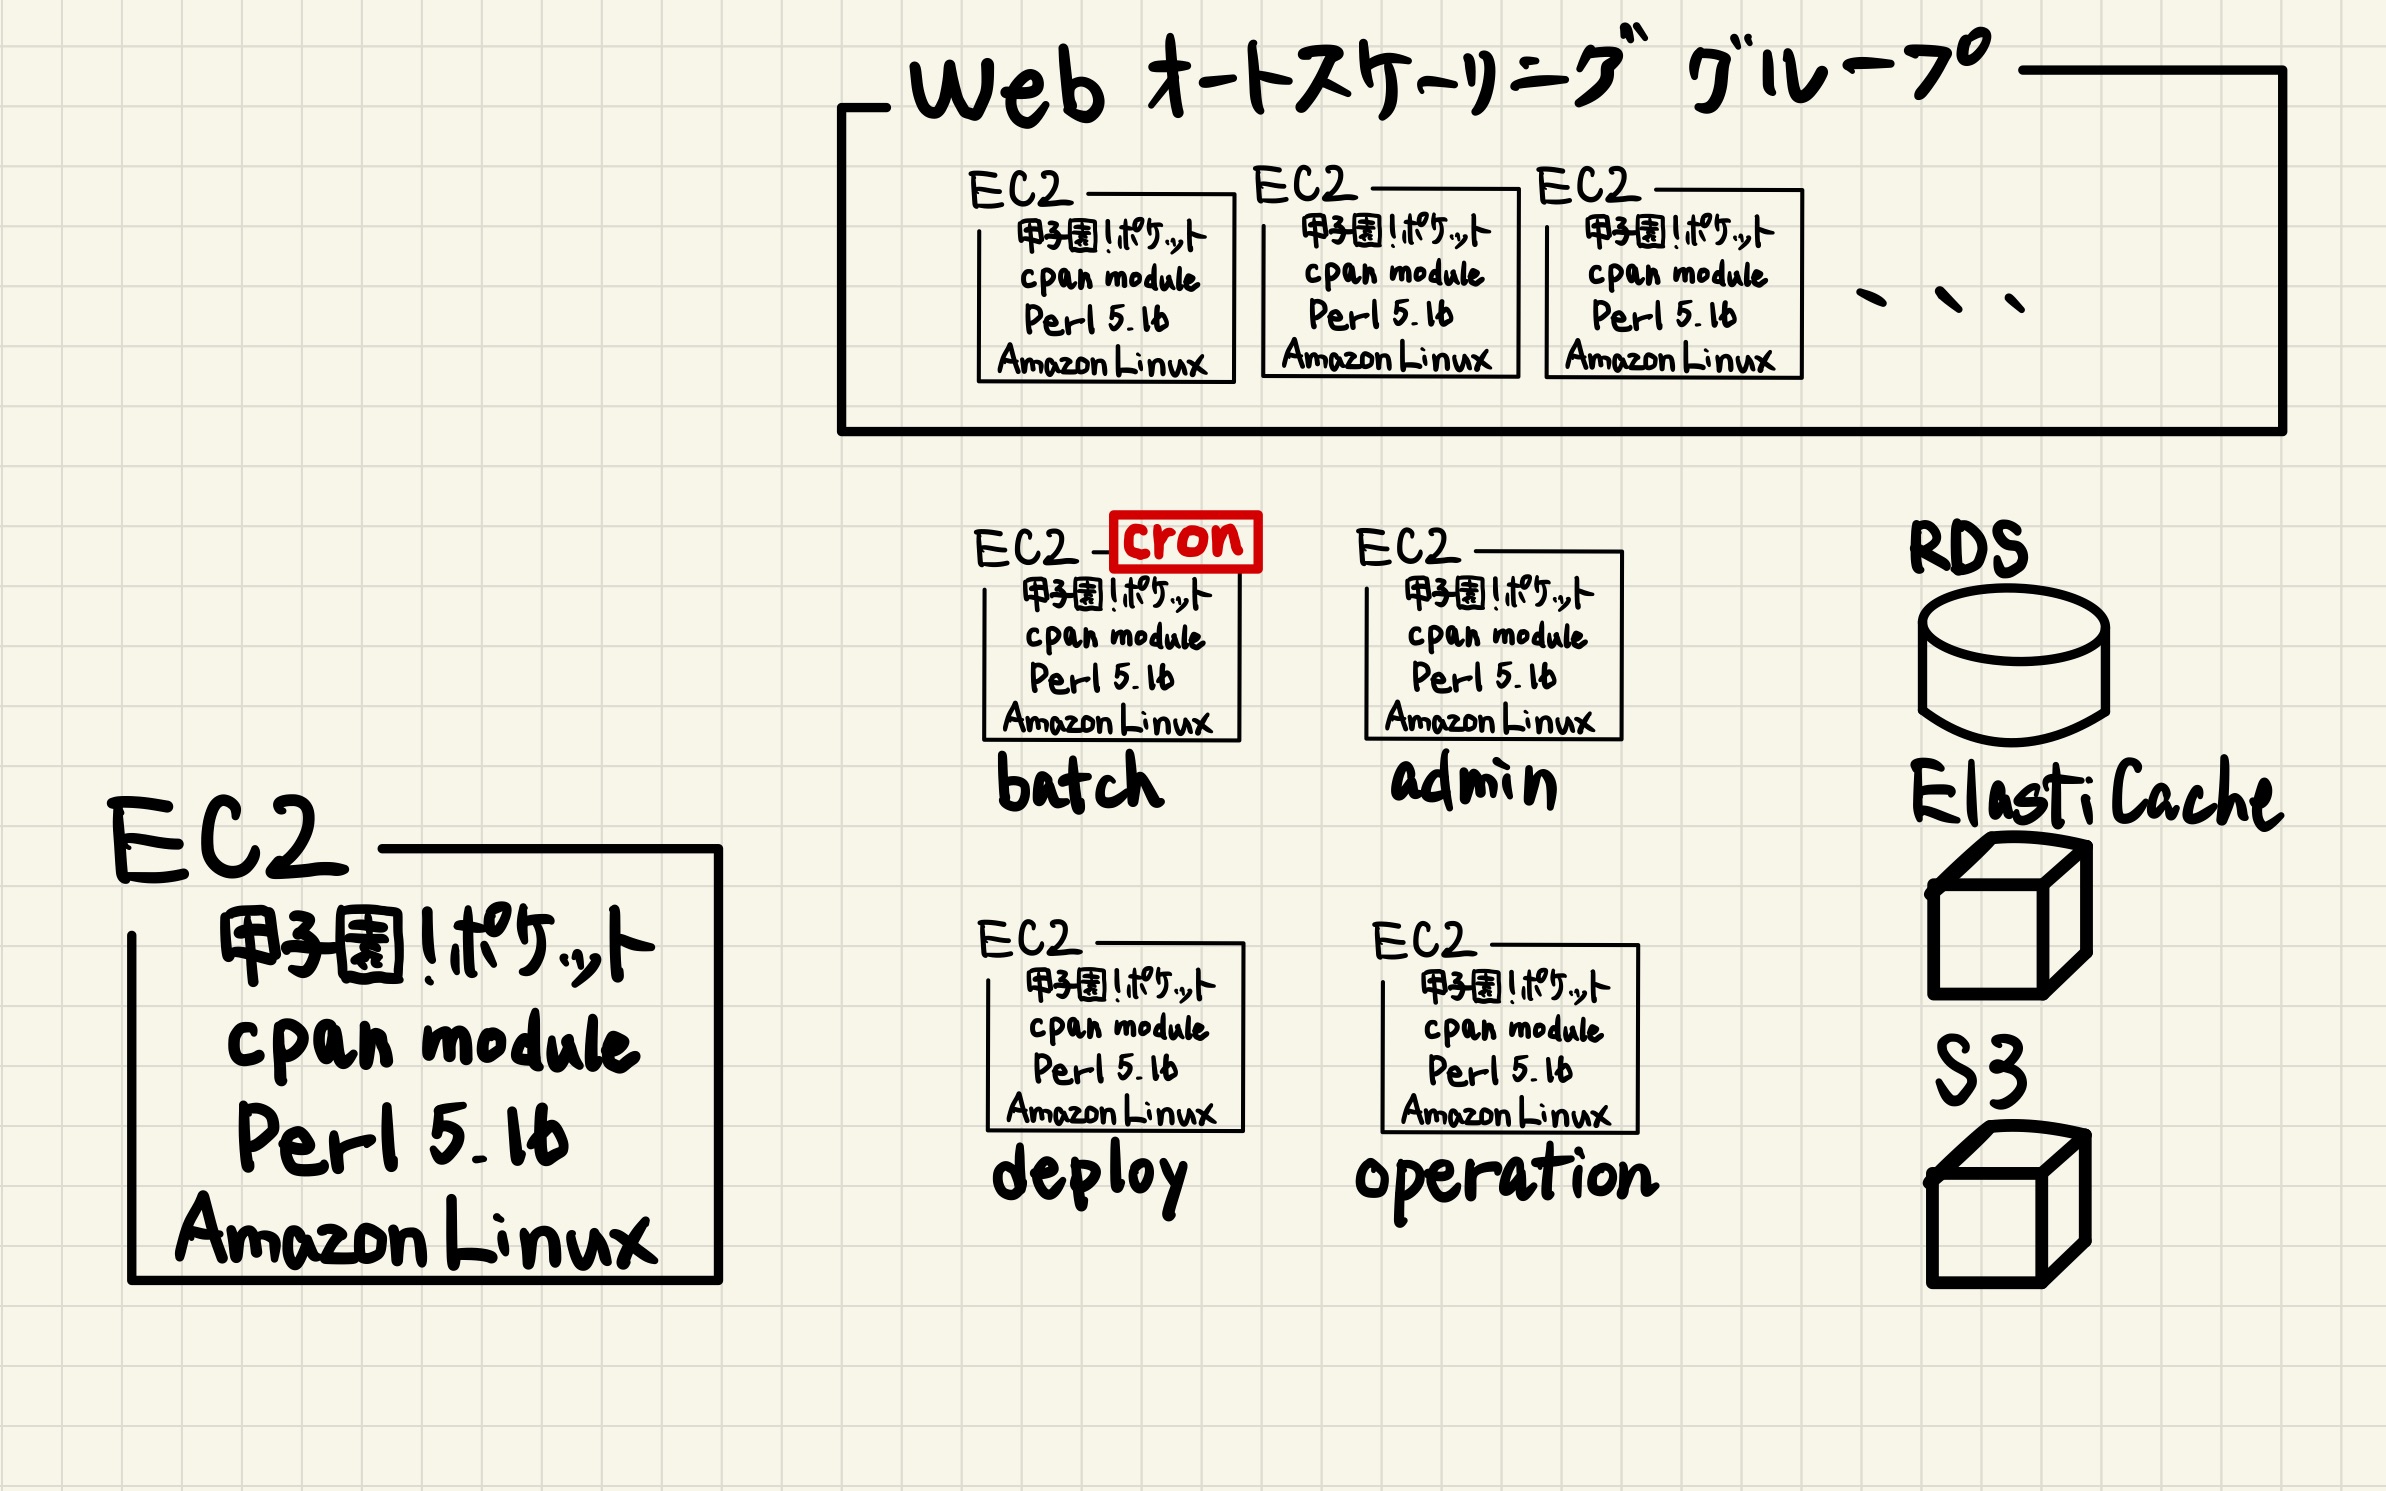 Web オートスケーリング グループ
EC2
甲子園！ポケット
cpan module
Perl 5.16
Amazon Linux
EC2
甲子園！ポケット
cpan module
Perl 5.16
Amazon Linux
EC2
甲子園！ポケット
cpan module
Perl 5.16
Amazon Linux
、、、
EC2
cron
甲子園！ポケット
cpan module
Perl 5.16
Amazon Linux
batch
EC2
甲子園！ポケット
cpan module
Perl 5.16
Amazon Linux
admin
RDS
ElastiCache
EC2
甲子園！ポケット
cpan module
Perl 5.16
Amazon Linux
EC2
甲子園！ポケット
cpan module
Perl 5.16
Amazon Linux
deploy
EC2
甲子園！ポケット
cpan module
Perl 5.16
Amazon Linux
operation
S3